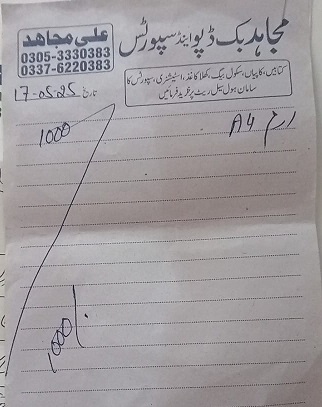 مجاہد بک ڈپو اینڈ سپورٹس
علی مجاہد
0305-3330383
0337-6220383
کتابیں، کاپیاں، سکول بیگ، کھلا کاغذ، اسٹیشنری، سپورٹس کا
سامان ہول سیل ریٹ پر خرید فرمائیں
تاریخ 17-05-25
رم A4 1000
1000/.